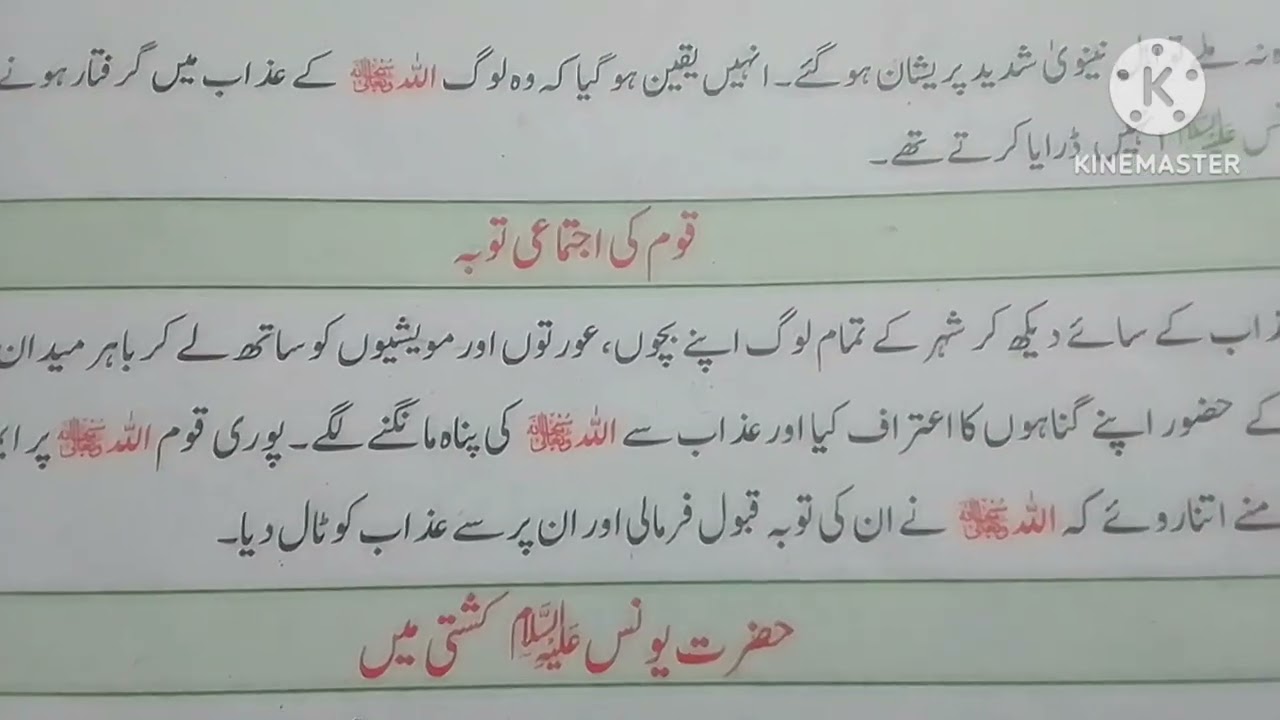 نہ ملے نینویٰ شدید پریشان ہوگئے۔ انہیں یقین ہوگیا کہ وہ لوگ اللہ ﷻ کے عذاب میں گرفتار ہونے
علیہ السلام انہیں ڈرایا کرتے تھے۔
K
KINEMASTER
قوم کی اجتماعی توبہ
کے سائے دیکھ کر شہر کے تمام لوگ اپنے بچوں، عورتوں اور مویشیوں کو ساتھ لے کر باہر میدان
کے حضور اپنے گناہوں کا اعتراف کیا اور عذاب سے اللہ ﷻ کی پناہ مانگنے لگے۔ پوری قوم اللہ ﷻ پر
اتنا روئے کہ اللہ ﷻ نے ان کی توبہ قبول فرمالی اور ان پر سے عذاب کو ٹال دیا۔
حضرت یونس علیہ السلام کشتی میں